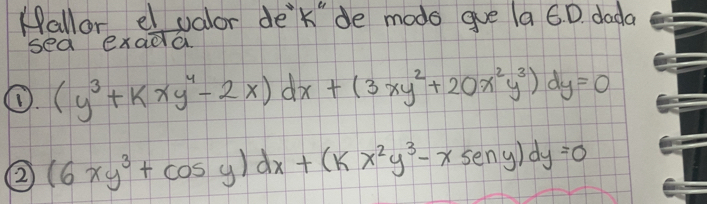 Hallor el valor de "K" de modo que la E.D. dada
sea exacta.
①. (y³ + Kxy⁴ - 2x) dx + (3xy² + 20x²y³) dy = 0
② (6xy³ + cos y) dx + (Kx²y³ - x sen y) dy = 0